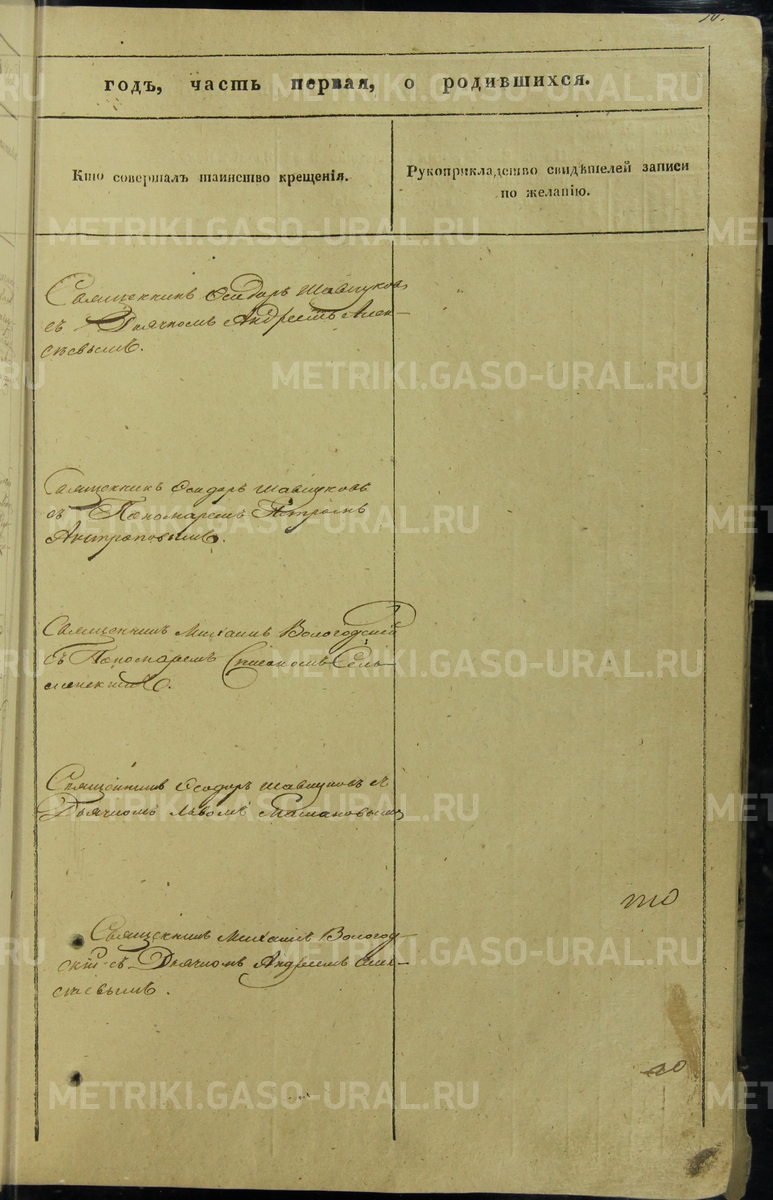 годъ, часть первая, о родившихся.
Кто совершалъ таинство крещенія.
Рукоприкладство свидѣтелей записи
по желанію.
Священникъ Ѳеодоръ Шавкуновъ
съ Дьячкомъ Андреемъ Алек-
сѣевымъ.
Священникъ Ѳеодоръ Шавкуновъ
съ Пономаремъ Петромъ
Антроповымъ.
Священникъ Михаилъ Вологодскій
съ Пономаремъ
Священникъ Ѳеодоръ Шавкуновъ съ
Дьячкомъ Львомъ
Священникъ Михаилъ Вологод-
скій съ Дьячкомъ Андреемъ Алек-
сѣевымъ.
METRIKI.GASO-URAL.RU